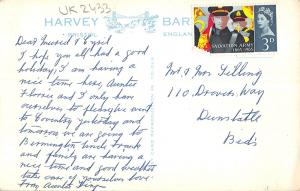 UK 2433
HARVEY BAR
BRISTOL ENGLAND
SALVATION ARMY
1865 1965
3D
Dear Muriel & Cyril
I hope you all had a good
holiday, I am having a
nice time here, Auntie
Florrie and I only have
ourselves to please, we went
to Coventry yesterday and
tomorrow we are going to
Birmingham Uncle Frank
and family are having a
nice time and good weather
take care of yourselves love
from Auntie
Mr & Mrs Lilling
110 Drovers Way
Dunstable
Beds